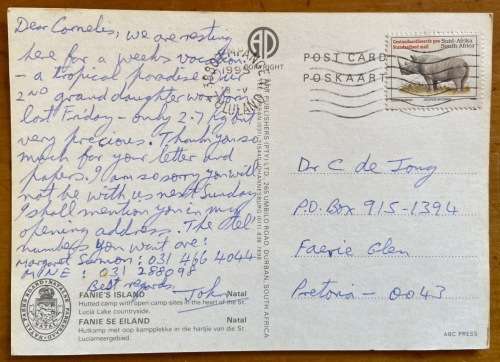 Dear Cornelis, we are resting
here for a weeks vacation
- a tropical paradise. Our
2ND granddaughter was born
last Friday - only 2.7 kg but
very precious. Thank you so
much for your letter and
papers. I am so sorry you will
not be with us next Sunday
I shall mention you in my
opening address. The tel
numbers you want are:
Margaret Salmon: 031 466 4044
MINE: 031 288098
Best regards
John
FANIE'S ISLAND Natal
Hutted camp with open camp sites in the heart of the St.
Lucia Lake countryside.
FANIE SE EILAND Natal
Hutkamp met oop kampplekke in die hartjie van die St.
Luciameergebied.
NATAL
COPYRIGHT
ART PUBLISHERS (PTY) LTD, DURBAN, SOUTH AFRICA
1995
POST CARD
POSKAART
Standardised mail
Suid-Afrika
South Africa
Dr C de Jong
P.O. Box 915-1394
Faerie Glen
Pretoria - 0043
ABC PRESS